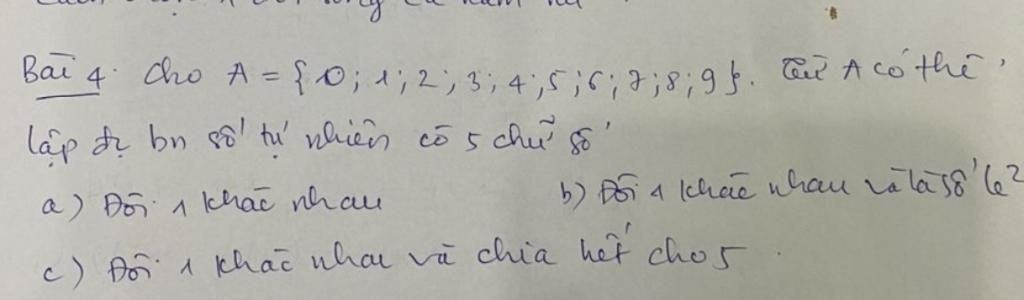 Bài 4. Cho A = {0; 1; 2; 3; 4; 5; 6; 7; 8; 9}. Từ A có thể
lập đc bn số tự nhiên có 5 chữ số
a) Đôi 1 khác nhau
b) Đôi 1 khác nhau và là số lẻ
c) Đôi 1 khác nhau và chia hết cho 5.